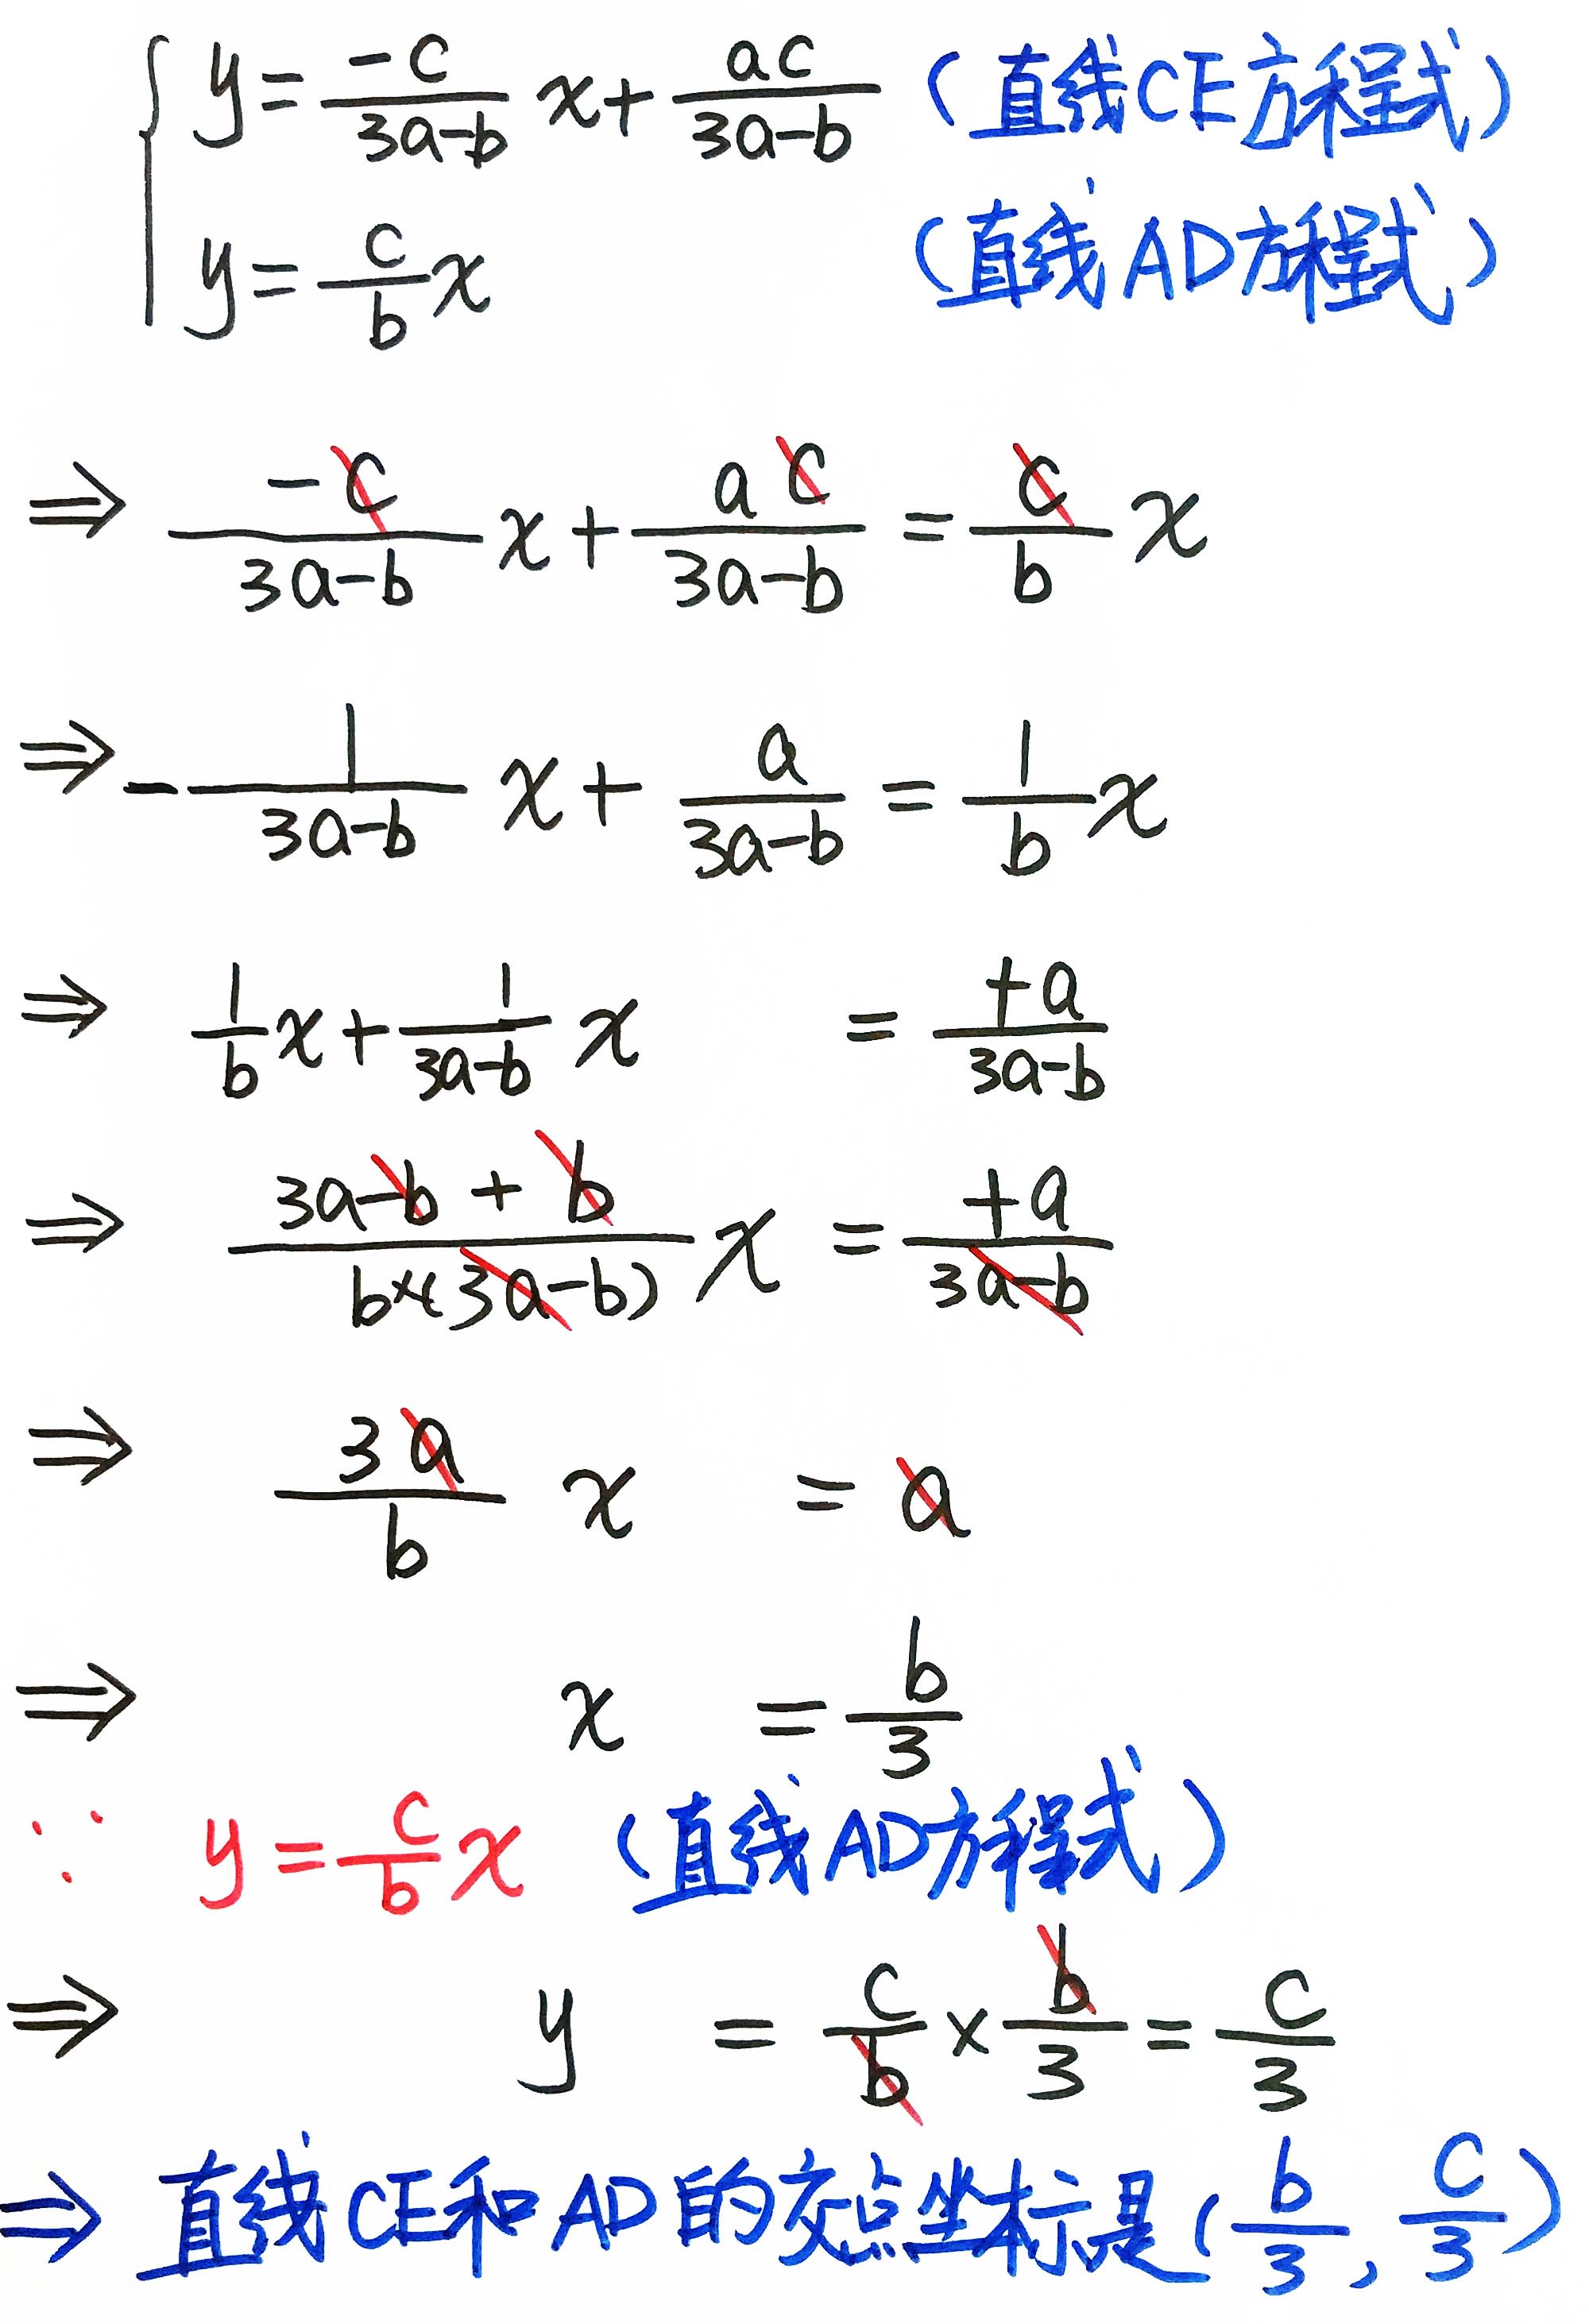 { y = \frac{-c}{3a-b} x + \frac{ac}{3a-b} (直线CE方程式)
y = \frac{c}{b} x (直线AD方程式)
⇒ \frac{-c}{3a-b} x + \frac{ac}{3a-b} = \frac{c}{b} x
⇒ -\frac{1}{3a-b} x + \frac{a}{3a-b} = \frac{1}{b} x
⇒ \frac{1}{b} x + \frac{1}{3a-b} x = \frac{+a}{3a-b}
⇒ \frac{3a-b+b}{b×(3a-b)} x = \frac{+a}{3a-b}
⇒ \frac{3a}{b} x = a
⇒ x = \frac{b}{3}
∵ y = \frac{c}{b} x (直线AD方程式)
⇒ y = \frac{c}{b} × \frac{b}{3} = \frac{c}{3}
⇒ 直线CE和AD的交点坐标是(\frac{b}{3}, \frac{c}{3})